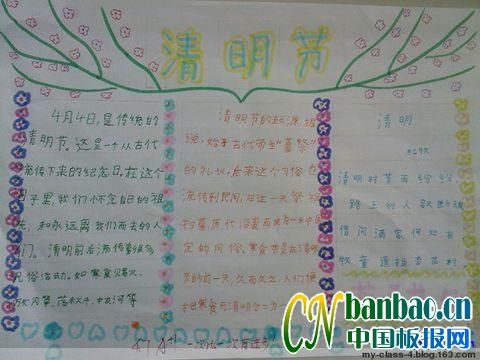 清明节
4月4日,是传统的
清明节。这是一个从古代
流传下来的纪念日。在这个
日子里,我们怀念自己的祖
先,和永远离我们而去的人
们。清明前后流传
民俗活动。如寒食
放风筝、荡秋千、拔河等
清明节的起源,据
说,始于古代帝王"墓祭"
的礼仪,后来这个习俗也
流传到民间,在这一天祭祖
扫墓历代沿袭而成为一种固
定的风俗。寒食节是在清明
节的前一天,久而久之,人们便
把寒食与清明合二为一
清明
杜牧
清明时节雨纷纷
路上行人欲断魂
借问酒家何处有
牧童遥指杏花村
一次比一次有进步!
CN banbao.cn
中国板报网
my-class-4.blog.163.com